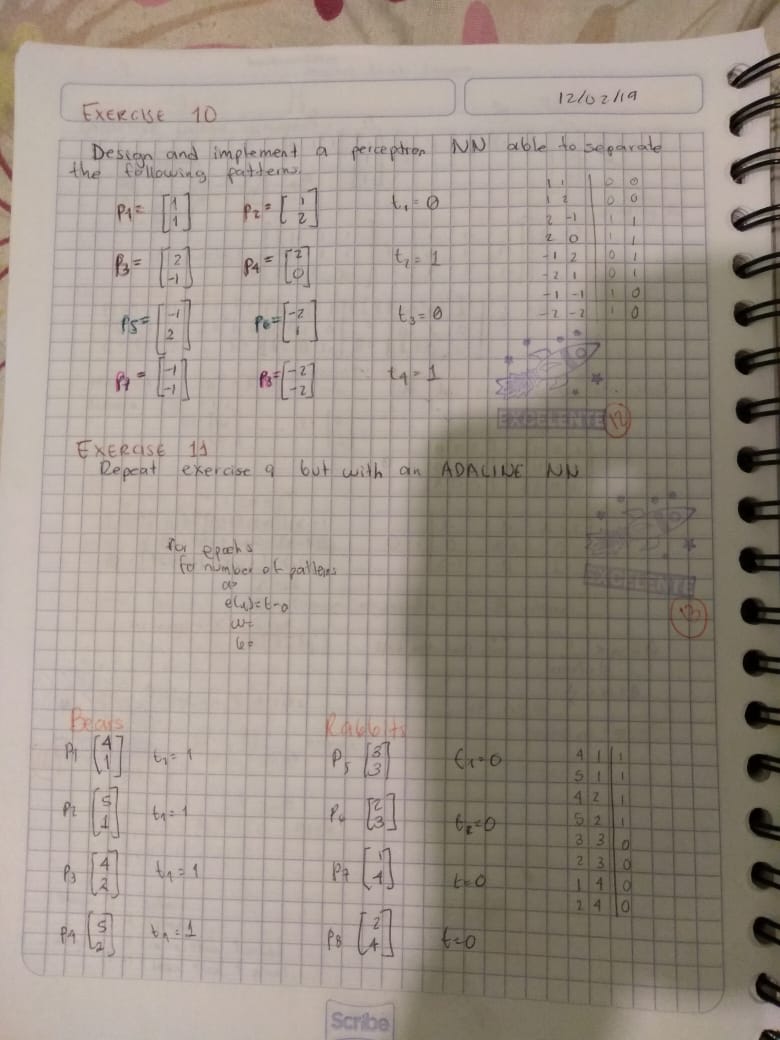 12/02/19
EXERCISE 10
Design and implement a perceptron NN able to separate
the following patterns.
P1= [1 1] P2= [1 2] t1= 0
P3= [2 -1] P4= [2 0] t2= 1
P5= [-1 2] P6= [-2 1] t3= 0
P7= [-1 -1] P8= [-2 -2] t4= 1
1 1 | 0 0
1 2 | 0 0
2 -1 | 1 1
2 0 | 1 1
-1 2 | 0 1
-2 1 | 0 1
-1 -1 | 1 0
-2 -2 | 1 0
EXCELENTE
EXERCISE 11
Repeat exercise 9 but with an ADALINE NN
EXCELENTE
for epochs
fo number of patterns
w=
b=
Bears Rabbits
P1 [4 1] = 1 P5 [3 3] = 0
P2 [5 1] = 1 [2 3] = 0
P3 [4 2] = 1 P7 [1 4] t=0
P4 [5 2] = 1 P8 [2 4] t=0
4 1 | 1
5 1 | 1
4 2 | 1
5 2 | 1
3 3 | 0
2 3 | 0
1 4 | 0
2 4 | 0
Scribe